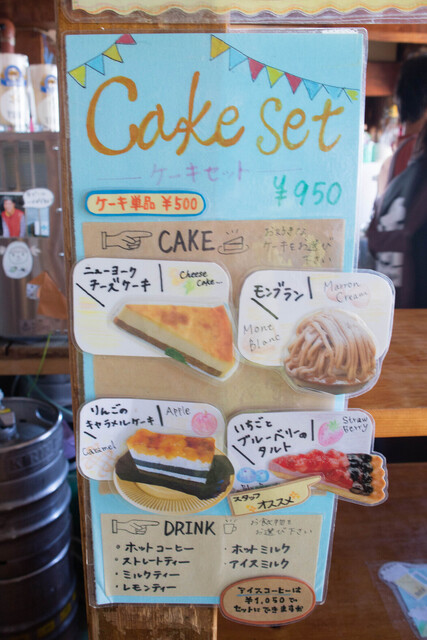 Cake set
ケーキセット
¥950
ケーキ単品 ¥500
CAKE
お好きな
ケーキをお選び
下さい
ニューヨーク
チーズケーキ
Cheese
Cake
モンブラン
Marron
Cream
Mont
Blanc
りんごの
キャラメルケーキ
Apple
Caramel
いちごと
ブルーベリーの
タルト
Straw
Berry
スタッフ
オススメ
DRINK
お飲物を
お選び下さい
・ホットコーヒー
・ストレートティー
・ミルクティー
・レモンティー
・ホットミルク
・アイスミルク
アイスコーヒーは
¥1,050で
セットにできます